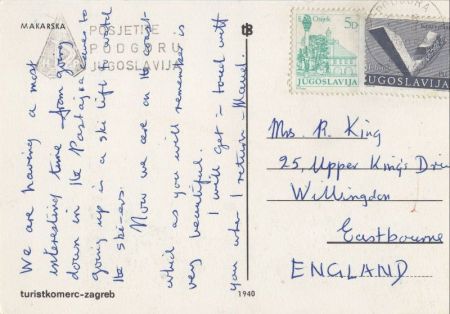 MAKARSKA
POSJETITE
PODGORU
JUGOSLAVIJA
We are having a most
interesting time – from going
down in the Postojna caves to
going up in a ski lift with
the ski-ers.
Now we are on the coast
which as you will remember is
very beautiful.
I will get in touch with
you when I return –
turistkomerc-zagreb
1940
Osijek
5D
JUGOSLAVIJA
JUGOSLAVIJA
Mrs. R. King
25, Upper King's Drive
Willingdon
Eastbourne
ENGLAND